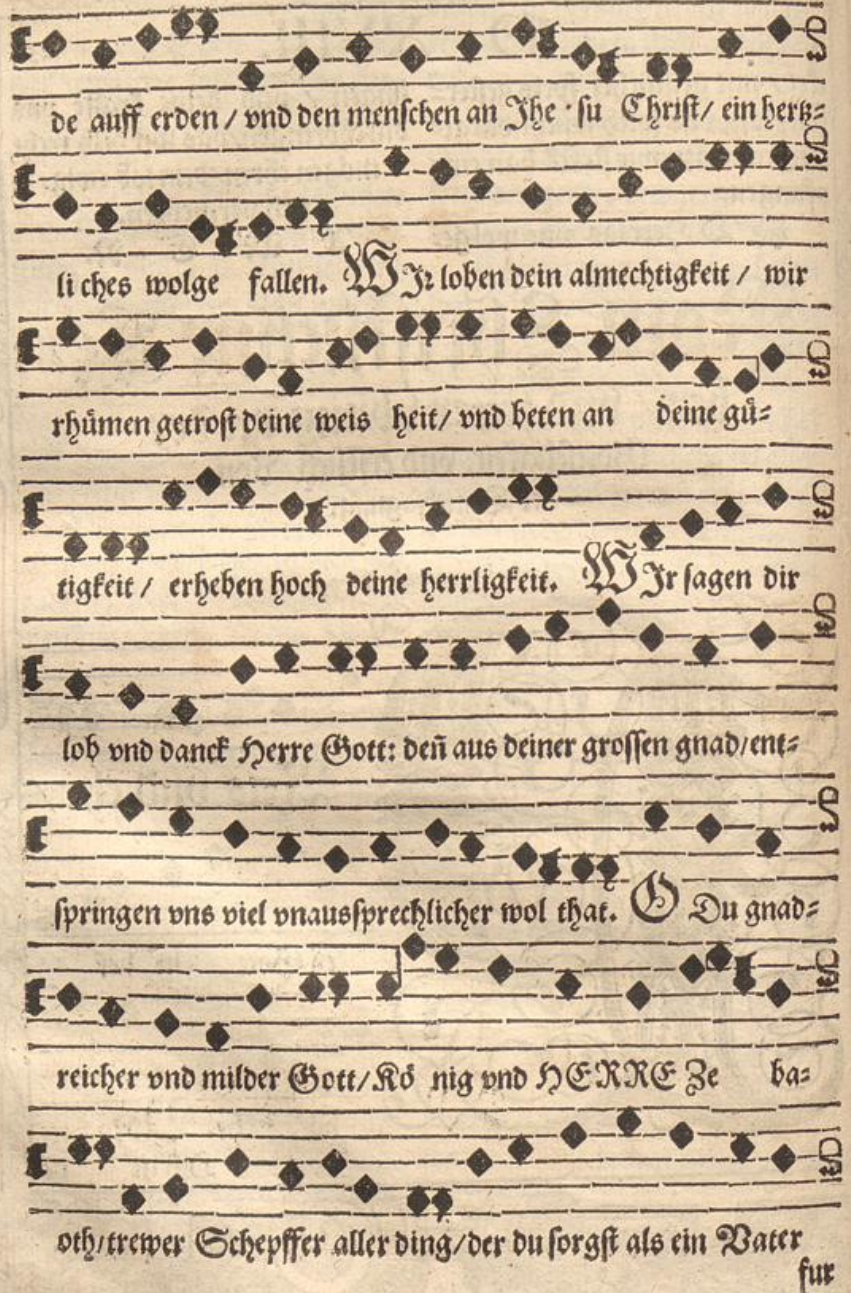 de auff erden / vnd den menschen an Jhe su Christ / ein hertz=
li ches wolge fallen. WJr loben dein almechtigkeit / wir
rhümen getrost deine weis heit / vnd beten an deine gü=
tigkeit / erheben hoch deine herrligkeit. WJr sagen dir
lob vnd danck Herre Gott: den̄ aus deiner grossen gnad / ent=
springen vns viel vnaussprechlicher wol that. O Du gnad=
reicher vnd milder Gott / Kö nig vnd HERRE Ze ba=
oth / trewer Schepffer aller ding / der du sorgst als ein Vater
fur